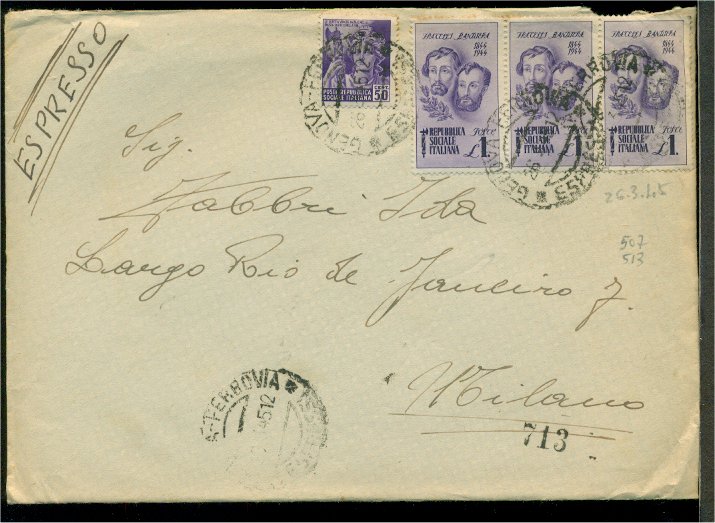 ESPRESSO
POSTE REPUBBLICA
SOCIALE ITALIANA
50
FRATELLI BANDIERA
1844
1944
REPUBBLICA
SOCIALE
ITALIANA
£1.
FRATELLI BANDIERA
1844
1944
REPUBBLICA
SOCIALE
ITALIANA
£1.
FRATELLI BANDIERA
1844
1944
REPUBBLICA
SOCIALE
ITALIANA
£1.
GENOVA-FERROVIA
GENOVA FERROVIA
Sig.
Fabbri Ida
Largo Rio de Janeiro 7.
Milano
26.3.45
507
513
A-FERROVIA
4512
713